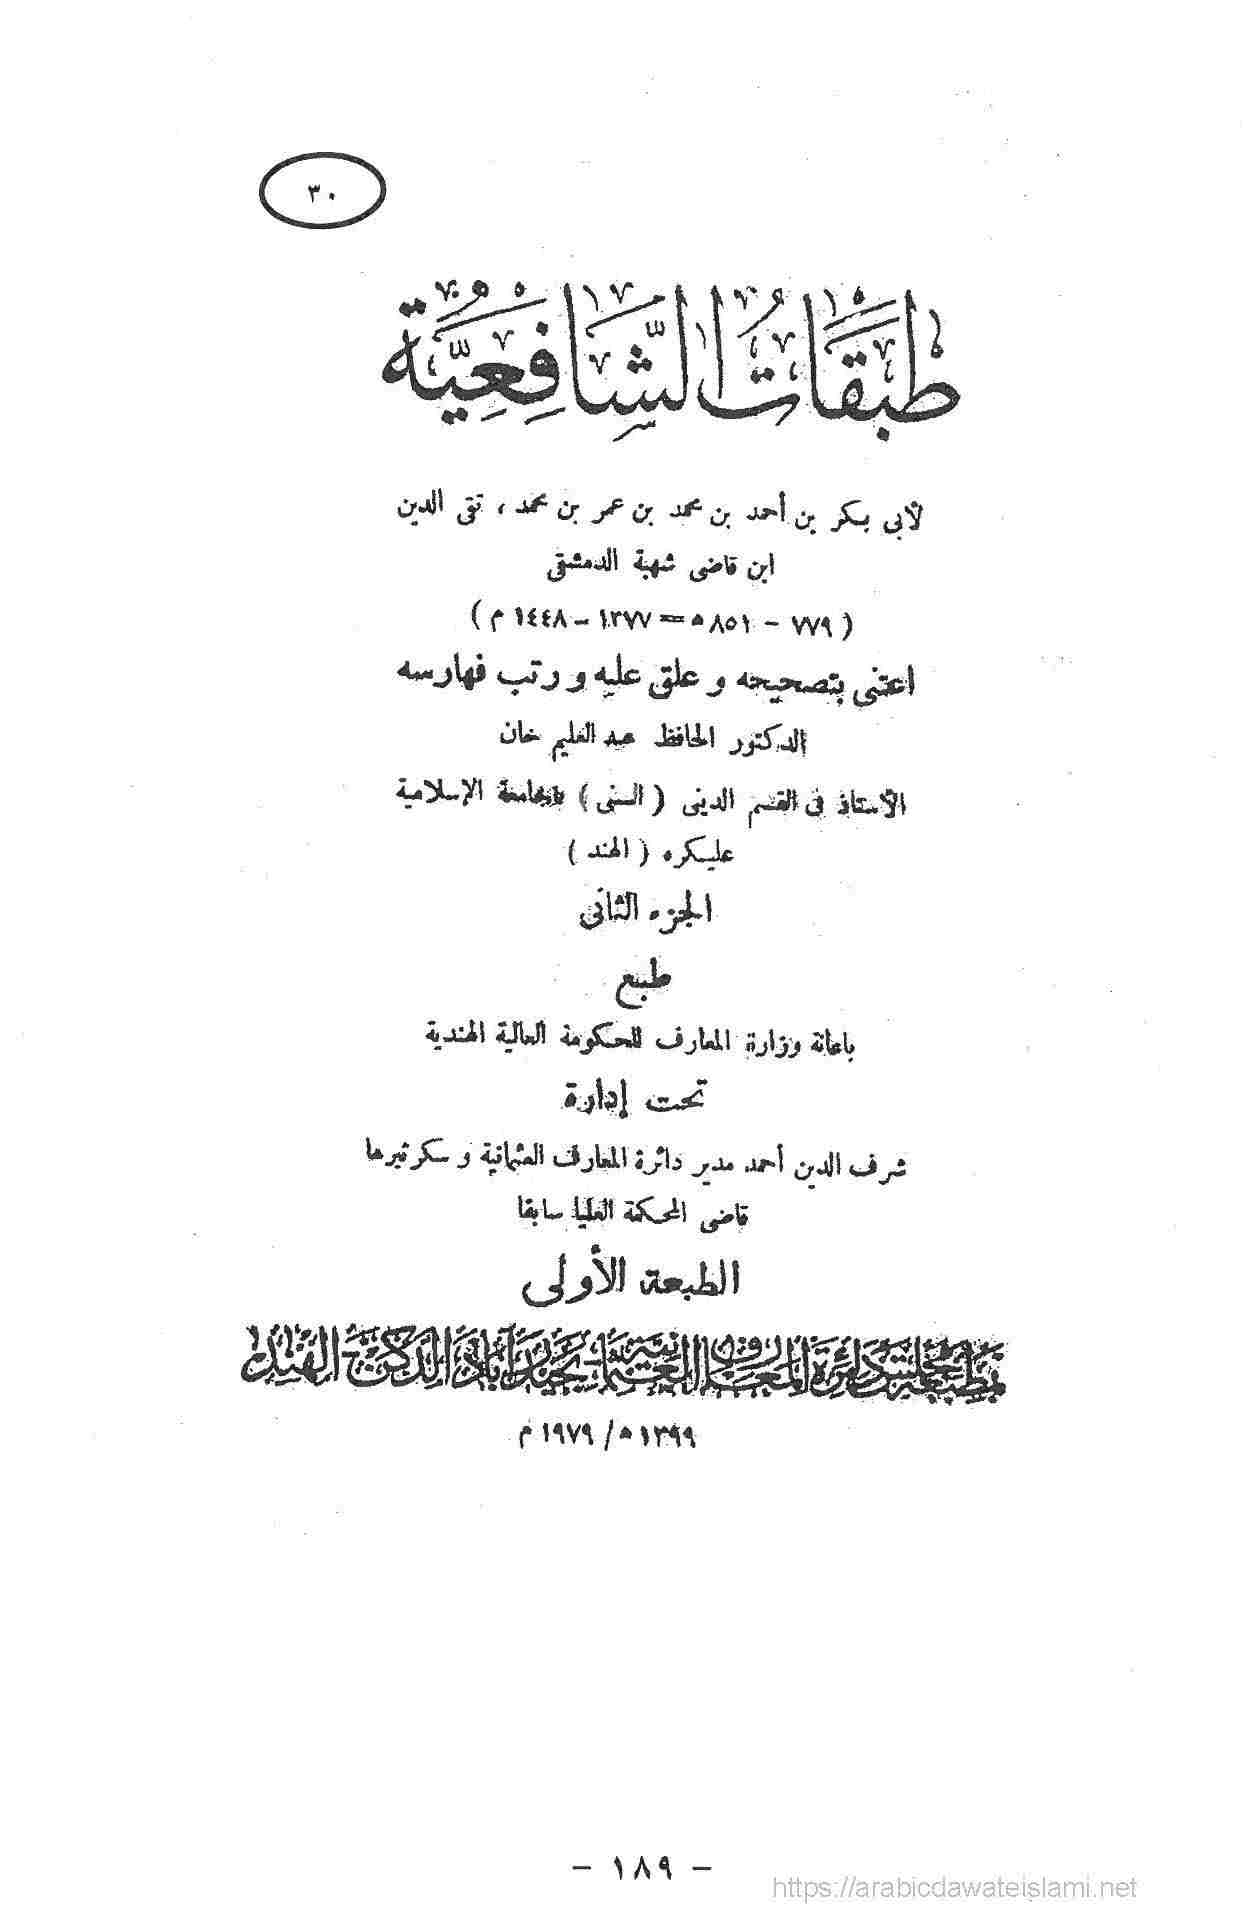 ٣٠
طَبَقَاتُ الشَّافِعِيَّةِ
لأبى بكر بن أحمد بن محمد بن عمر بن محمد ، تقى الدين
ابن قاضى شهبة الدمشقى
( ٧٧٩ - ٨٥١ ه = ١٣٧٧ - ١٤٤٨ م )
اعتنى بتصحيحه و علق عليه و رتب فهارسه
الدكتور الحافظ عبد العليم خان
الأستاذ فى القسم الدينى ( السنى ) بالجامعة الإسلامية
عليكره ( الهند )
الجزء الثانى
طبع
باعانة وزارة المعارف للحكومة العالية الهندية
تحت إدارة
شرف الدين أحمد مدير دائرة المعارف العثمانية و سكرتيرها
قاضى المحكمة العليا سابقا
الطبعة الأولى
بمطبعة مجلس دائرة المعارف العثمانية بحيدر آباد الدكن الهند
١٣٩٩ ه / ١٩٧٩ م
- ١٨٩ -
https://arabicdawateislami.net